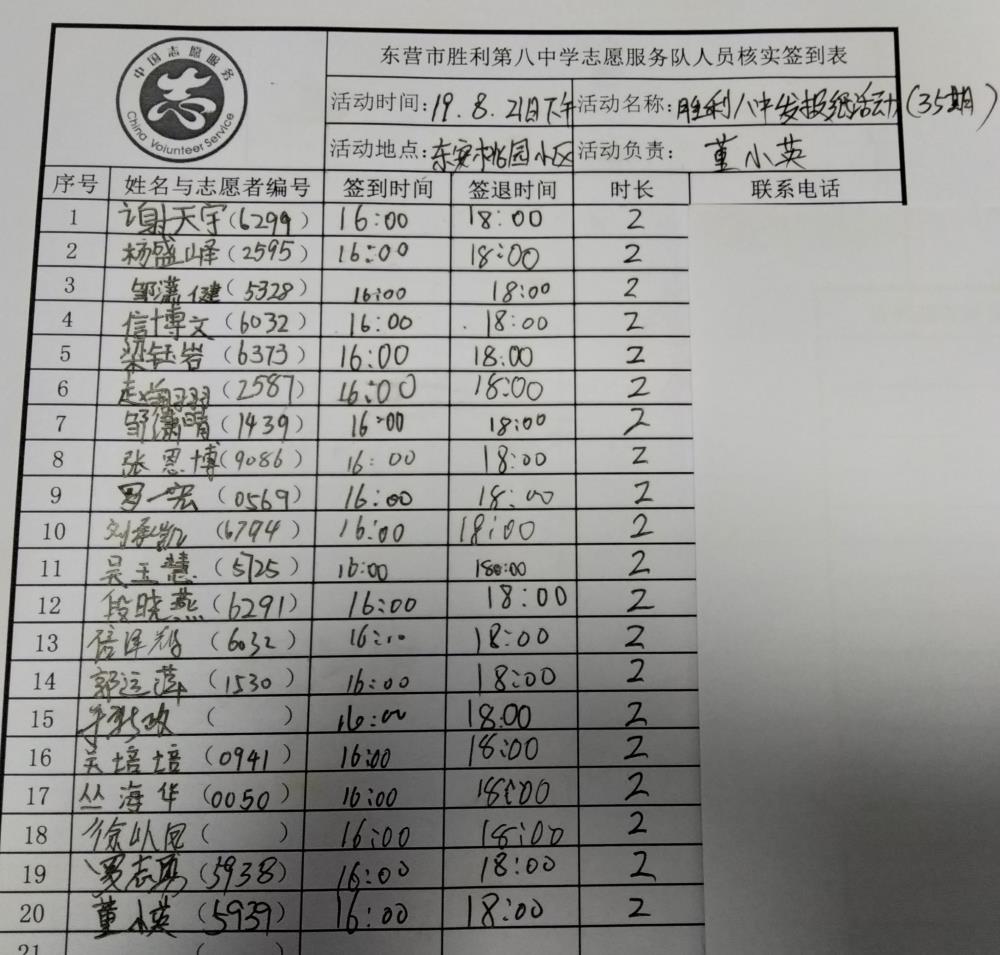 中国志愿服务
志
China Volunteer Service
东营市胜利第八中学志愿服务队人员核实签到表
活动时间:19.8.21日下午 活动名称:胜利八中发报纸活动(35期)
活动地点:东安桃园小区 活动负责: 董小英
序号 姓名与志愿者编号 签到时间 签退时间 时长 联系电话
1 谢天宇(6299) 16:00 18:00 2
2 杨盛峰(2595) 16:00 18:00 2
3 邹潇健(5328) 16:00 18:00 2
4 信博文(6032) 16:00 18:00 2
5 梁钰岩(6373) 16:00 18:00 2
6 赵翙羽(2587) 16:00 18:00 2
7 邹潇晴(1439) 16:00 18:00 2
8 张恩博(9086) 16:00 18:00 2
9 罗一宏(0569) 16:00 18:00 2
10 刘承凯(6794) 16:00 18:00 2
11 吴玉慧(5725) 16:00 18:00 2
12 段晓燕(6291) 16:00 18:00 2
13 信泽(6032) 16:00 18:00 2
14 郭运萍(1530) 16:00 18:00 2
15 ( ) 16:00 18:00 2
16 吴培培(0941) 16:00 18:00 2
17 丛海华(0050) 16:00 18:00 2
18 徐( ) 16:00 18:00 2
19 罗志勇(5938) 16:00 18:00 2
20 董小英(5939) 16:00 18:00 2
21 (